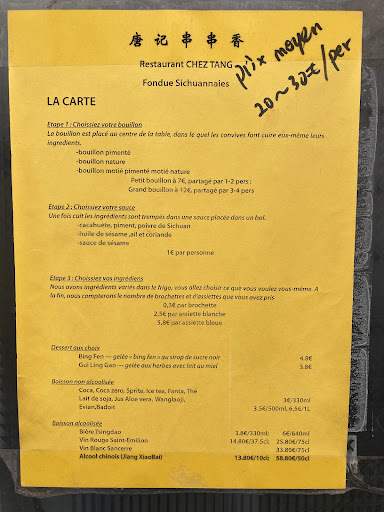 唐记串串香
Restaurant CHEZ TANG
Fondue Sichuannaies
prix moyen
20~30€/per
LA CARTE
Etape 1 : Choisissez votre bouillon
La bouillon est placé au centre de la table, dans le quel les convives font cuire eux-même leurs
ingredients.
-bouillon pimenté
-bouillon nature
-bouillon motié pimenté motié nature
Petit bouillon à 7€, partagé par 1-2 pers ;
Grand bouillon à 12€, partagé par 3-4 pers
Etape 2 : Choisissez votre sauce
Une fois cuit les ingrédients sont trempés dans une sauce placée dans un bol.
-cacahuète, piment, poivre de Sichuan
-huile de sésame ,ail et coriande
-sauce de sésame
1€ par personne
Etape 3 : Choisissez vos ingrédiens
Nous avons ingrédients variés dans le frigo, vous allez choisir ce que vous voulez vous-même. A
la fin, nous compterons le nombre de brochettes et d'assiettes que vous avez pris
0,3€ par brochette
2,5€ par assiette blanche
5,8€ par assiette bleue
Dessert aux choix
Bing Fen --- gelée « bing fen » au sirop de sucre noir 4.8€
Gui Ling Gao --- gelée aux herbes avec lait au miel 3.8€
Boisson non alcoolisée
Coca, Coca zero, Sprite, Ice tea, Fanta, Thé
Lait de soja, Jus Aloe vera, Wanglaoji, 3€/330ml
Evian,Badoit 3.5€/500ml, 6.5€/1L
Boisson alcoolisée
Bière Tsingdao 3.8€/330ml; 6€/640ml
Vin Rouge Saint-Emilion 14.80€/37.5cl; 25.80€/75cl
Vin Blanc Sancerre 33.80€/75cl
Alcool chinois (Jiang XiaoBai) 13.80€/10cl; 58.80€/50cl